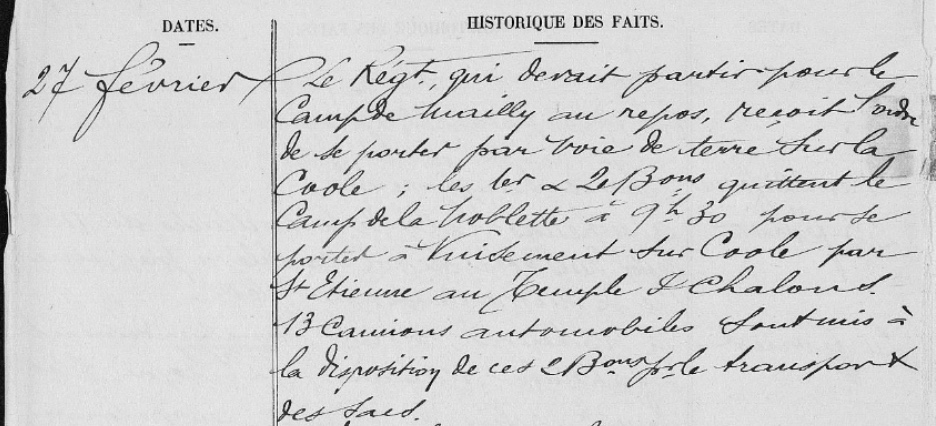 DATES.
HISTORIQUE DES FAITS.
27 février
Le Régt, qui devait partir pour le
Camp de Mailly au repos, reçoit l'ordre
de se porter par voie de terre sur la
Coole ; les 1er & 2e Bons quittent le
Camp de la Noblette à 9h30 pour se
porter à Nuisement sur Coole par
St Etienne au Temple & Chalons.
13 Camions automobiles sont mis à
la disposition de ces 2 Bons pr le transport
des sacs.